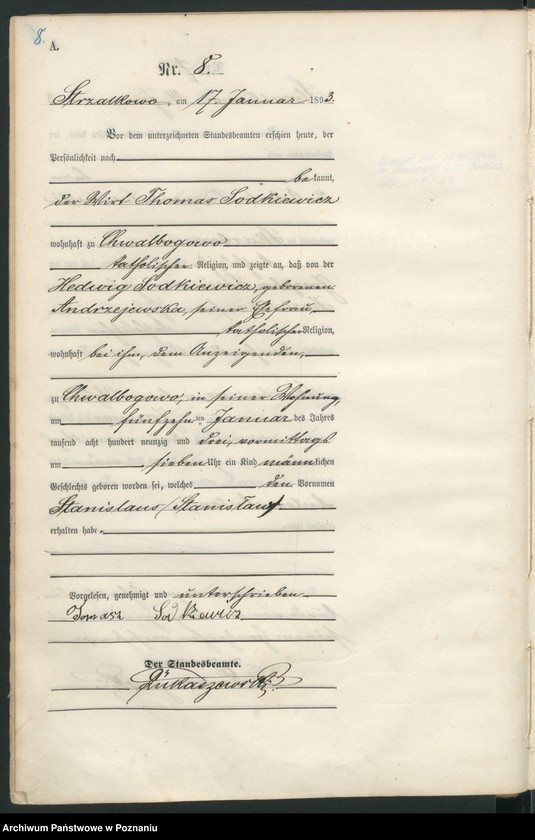 8.
A.
Nr. 8.
Strzalkowo, am 17. Januar 1893.
Vor dem unterzeichneten Standesbeamten erschien heute, der
Persönlichkeit nach
bekannt,
der Wirt Thomas Sodkiewicz
wohnhaft zu Chwalbogowo
katholischer Religion, und zeigte an, daß von der
Hedwig Sodkiewicz, geborenen
Andrzejewska, seiner Ehefrau,
katholischer Religion,
wohnhaft bei ihm, dem Anzeigenden,
zu Chwalbogowo, in seiner Wohnung,
am fünfzehnten Januar des Jahres
tausend acht hundert neunzig und drei, vormittags
um sieben Uhr ein Kind männlichen
Geschlechts geboren worden sei, welches den Vornamen
Stanislaus (Stanisław)
erhalten habe.
Vorgelesen, genehmigt und unterschrieben
Tomasz Sodkiewicz
Der Standesbeamte.
Łukaszewski
Archiwum Państwowe w Poznaniu